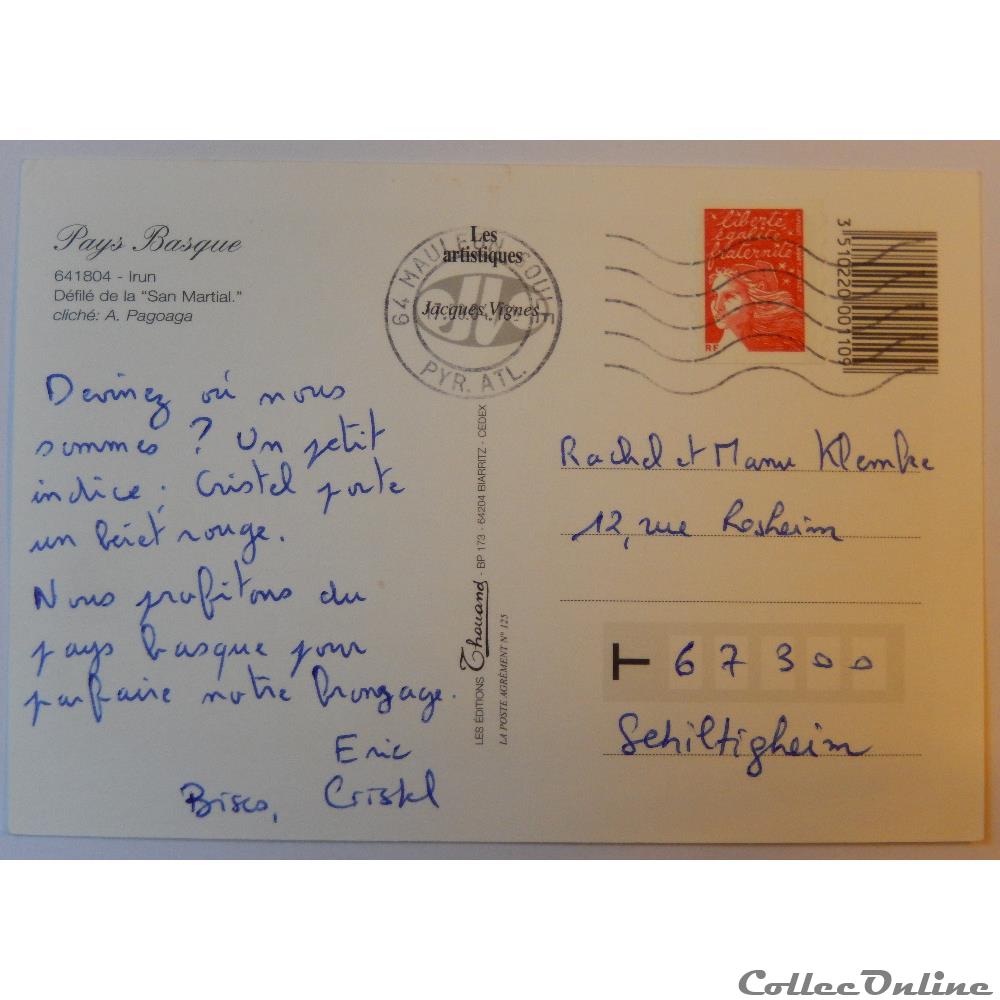 Pays Basque
641804 - Irun
Défilé de la "San Martial."
cliché: A. Pagoaga
Devinez où nous
sommes ? Un petit
indice : Cristel porte
un béret rouge.
Nous profitons du
pays basque pour
parfaire notre bronzage.
Eric
Bisco, Cristel
Les
artistiques
Jacques Vignes
64 MAULEON SOULE
PYR. ATL.
LES ÉDITIONS Thouand - BP 173 - 64204 BIARRITZ - CEDEX
LA POSTE AGRÉMENT N° 125
liberté
égalité
fraternité
RF
3 51020 001109
Rachel et Manu Klemke
12, rue Rosheim
T 67300
Schiltigheim
CollecOnline